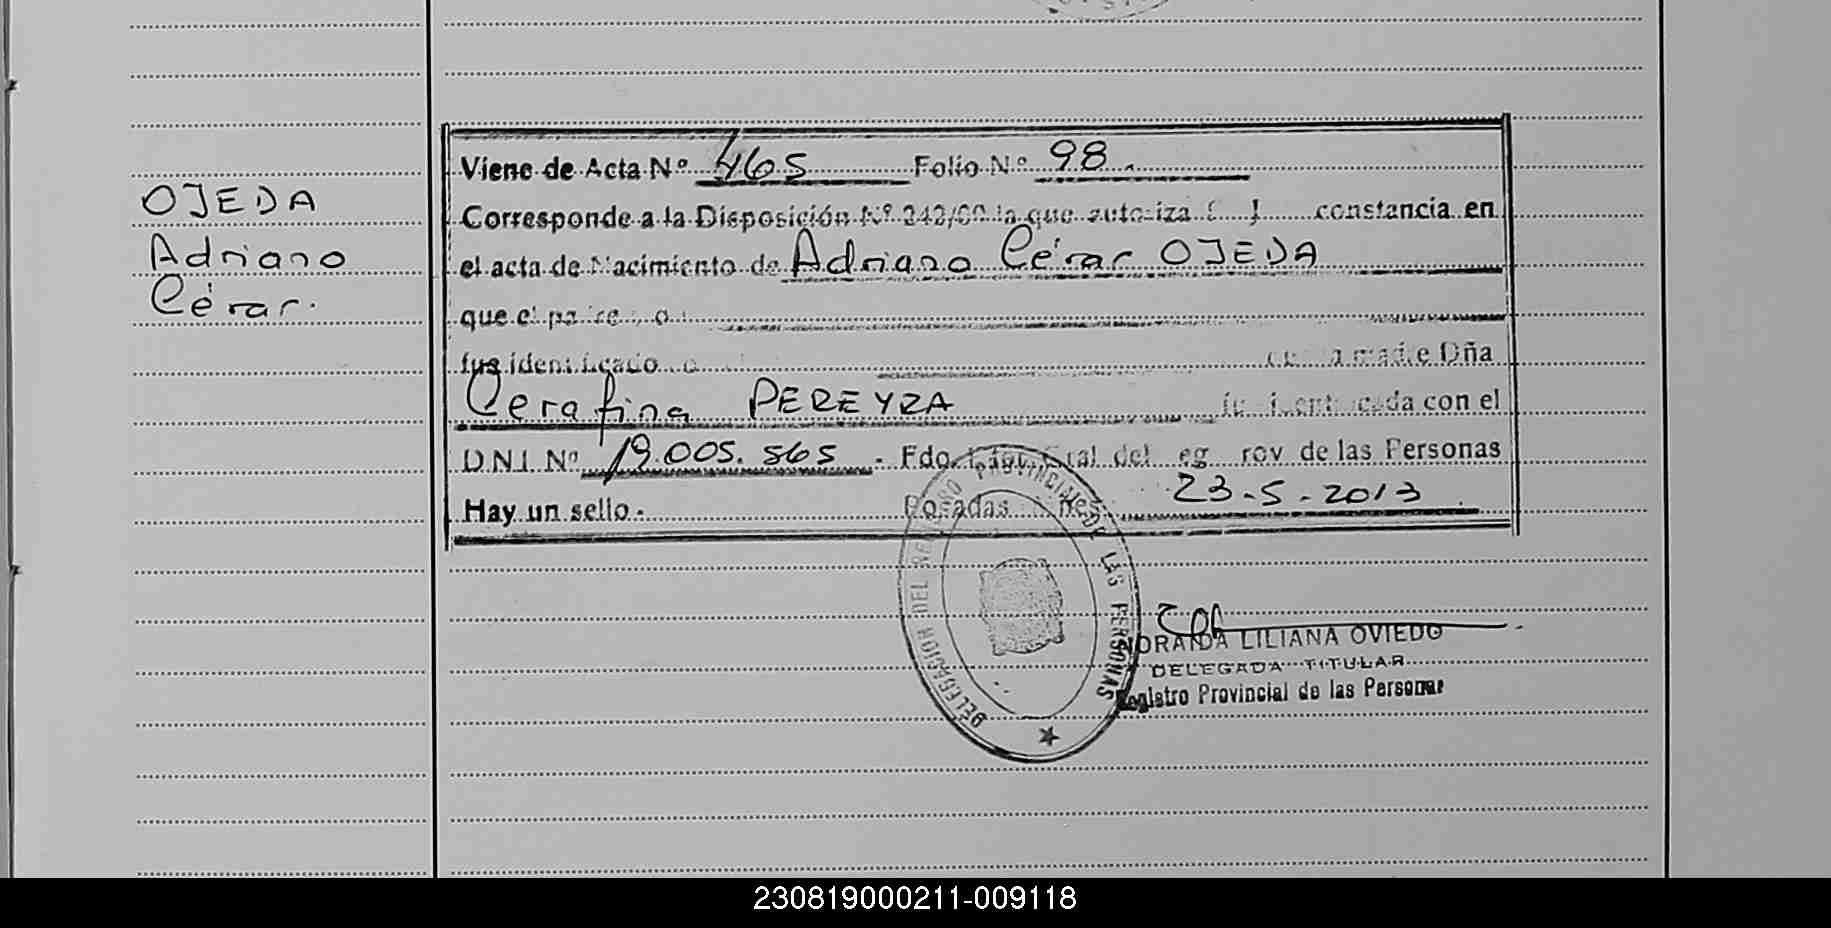 Viene de Acta Nº 465 Folio Nº 98.
OJEDA
Corresponde a la Disposición Nº 242/00 la que autoriza constancia en
Adriano
el acta de Nacimiento de Adriano César OJEDA
César.
que el padre
fue identificado madre Dña
Cerafina PEREYRA identificada con el
DNI Nº 19.005.565 - Fdo. del Reg Prov de las Personas
Hay un sello - Posadas Mnes 23-5-2013
DELEGACION DEL REGISTRO PROVINCIAL DE LAS PERSONAS
NORAIDA LILIANA OVIEDO
DELEGADA TITULAR
Registro Provincial de las Personas
230819000211-009118